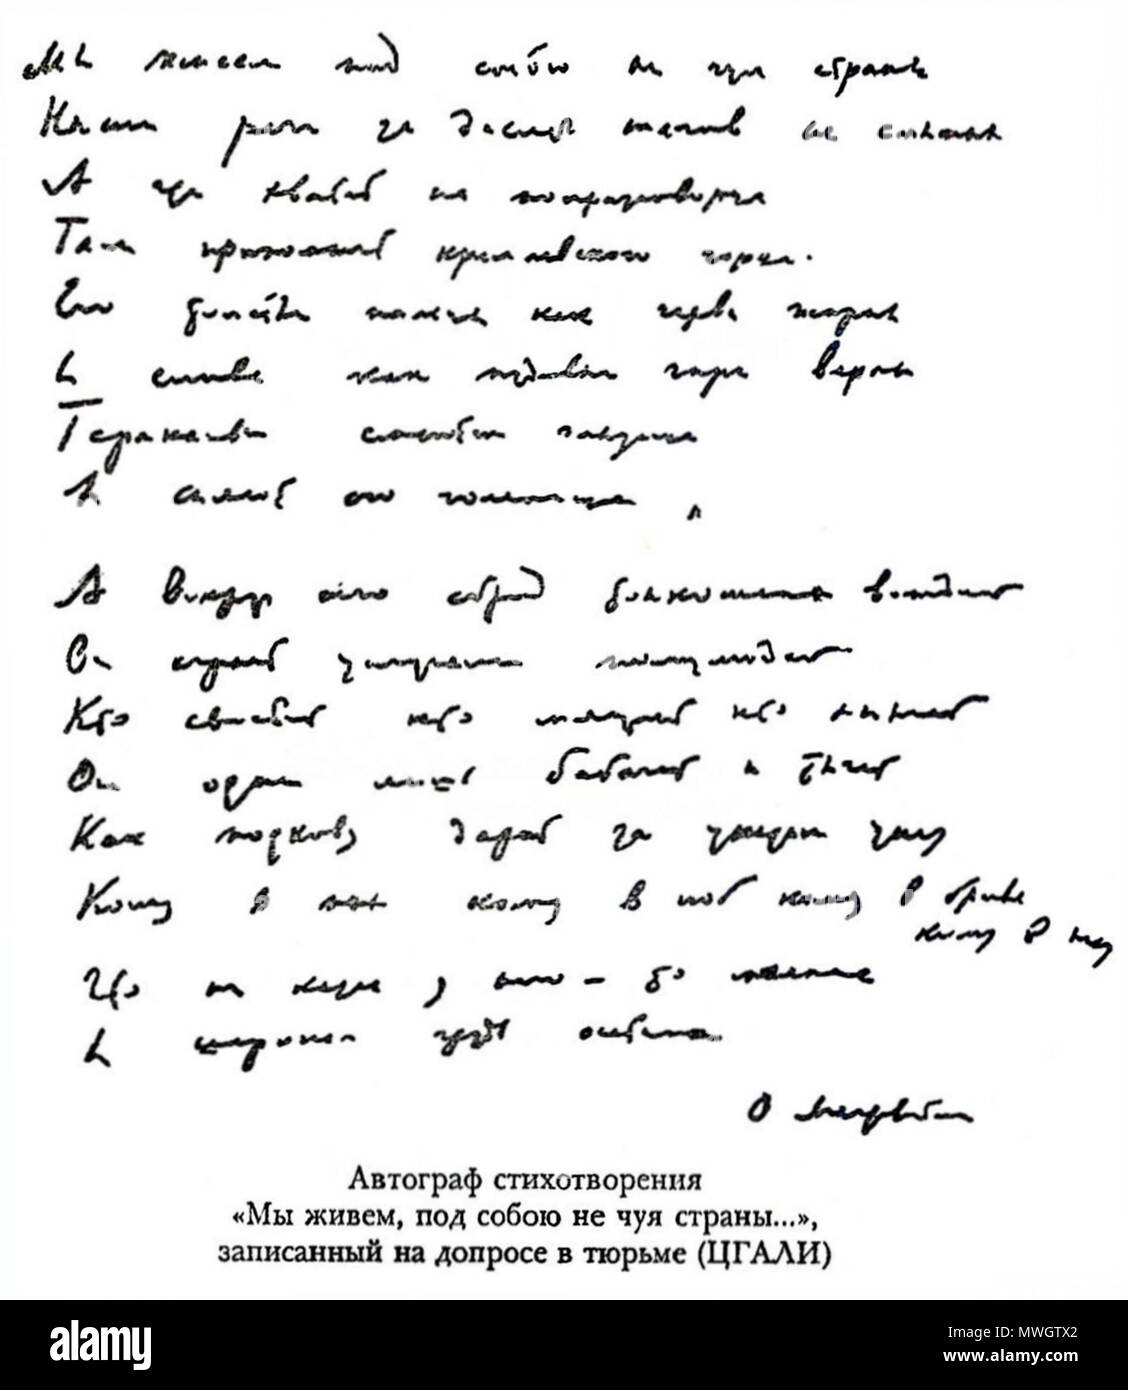 Мы живем под собою не чуя страны
Наши речи за десять шагов не слышны
А где хватит на полразговорца
Там припомнят кремлевского горца.
Его толстые пальцы как черви жирны
И слова как пудовые гири верны
Тараканьи смеются глазища
И сияют его голенища
А вокруг его сброд тонкошеих вождей
Он играет услугами полулюдей
Кто свистит кто мяучит кто хнычет
Он один лишь бабачит и тычет
Как подкову дарит за указом указ
Кому в пах кому в лоб кому в бровь
кому в глаз
Что ни казнь у него - то малина
И широкая грудь осетина
О Мандельштам
Автограф стихотворения
«Мы живем, под собою не чуя страны...»,
записанный на допросе в тюрьме (ЦГАЛИ)
alamy
Image ID: MWGTX2
www.alamy.com